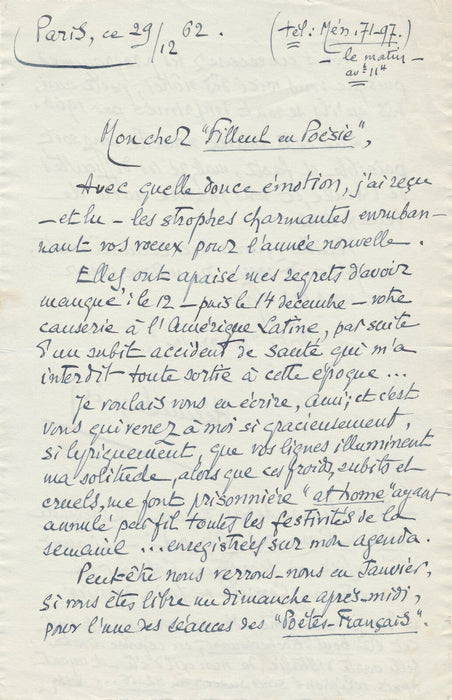 Paris, ce 29/12 62.
(tél: Mén. 71-97.)
- le matin -
avt 11H
Mon cher "Filleul en Poésie",
Avec quelle douce émotion, j'ai reçu
- et lu - les strophes charmantes enruban-
nant vos voeux pour l'année nouvelle.
Elles ont apaisé mes regrets d'avoir
manqué, le 12 - puis le 14 décembre - votre
causerie à l'Amérique Latine, par suite
d'un subit accident de santé qui m'a
interdit toute sortie à cette époque...
Je voulais vous en écrire, ami; et c'est
vous qui venez à moi si gracieusement,
si lyriquement, que vos lignes illuminent
ma solitude, alors que ces froids, subits et
cruels, me font prisonnière "at home" ayant
annulé par fil toutes les festivités de la
semaine ... enregistrées sur mon agenda.
Peut-être nous verrons-nous en Janvier,
si vous êtes libre un dimanche après-midi,
pour l'une des séances des "Poètes-Français".